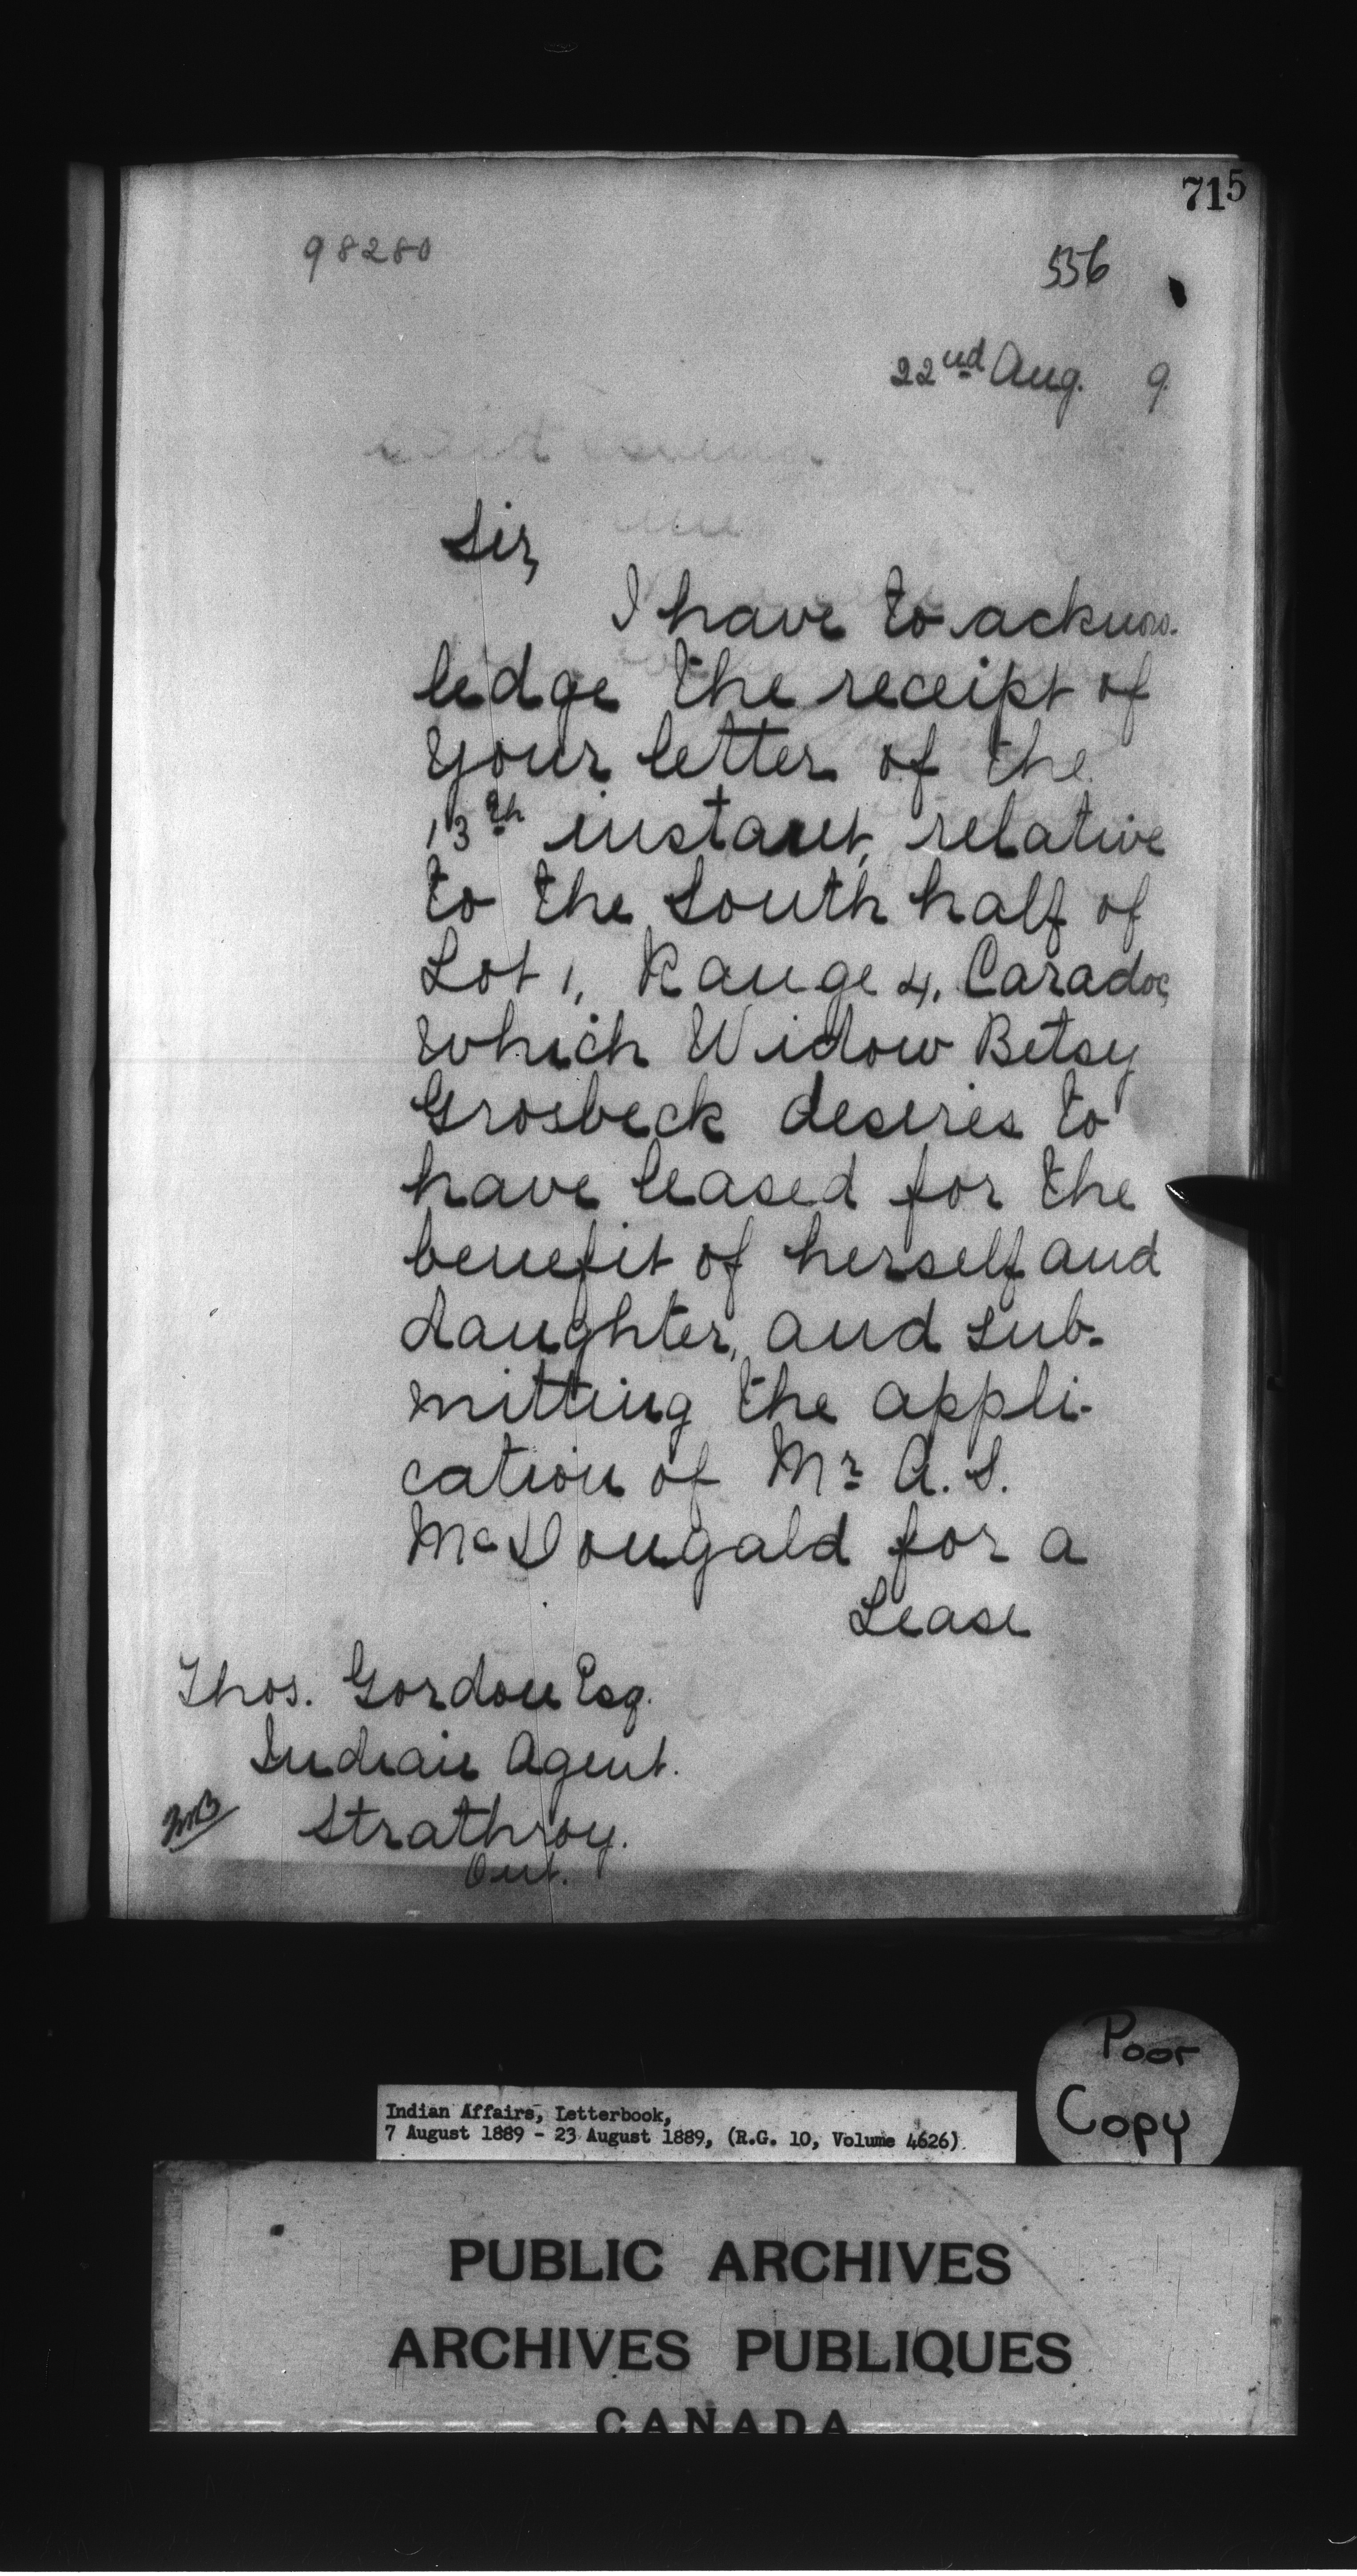 715
98280
556
22nd Aug. 9
Sir,
I have to acknow-
ledge the receipt of
your letter of the
13th instant, relative
to the South half of
Lot 1, Range 4, Caradoc,
which Widow Betsy
Grosbeck desires to
have leased for the
benefit of herself and
daughter, and sub-
mitting the appli-
cation of Mr A. S.
McDougald for a
Lease
Thos. Gordon Esq.
Indian Agent.
Strathroy.
Ont.
Poor
Copy
Indian Affairs, Letterbook,
7 August 1889 - 23 August 1889, (R.G. 10, Volume 4626)
PUBLIC ARCHIVES
ARCHIVES PUBLIQUES
CANADA